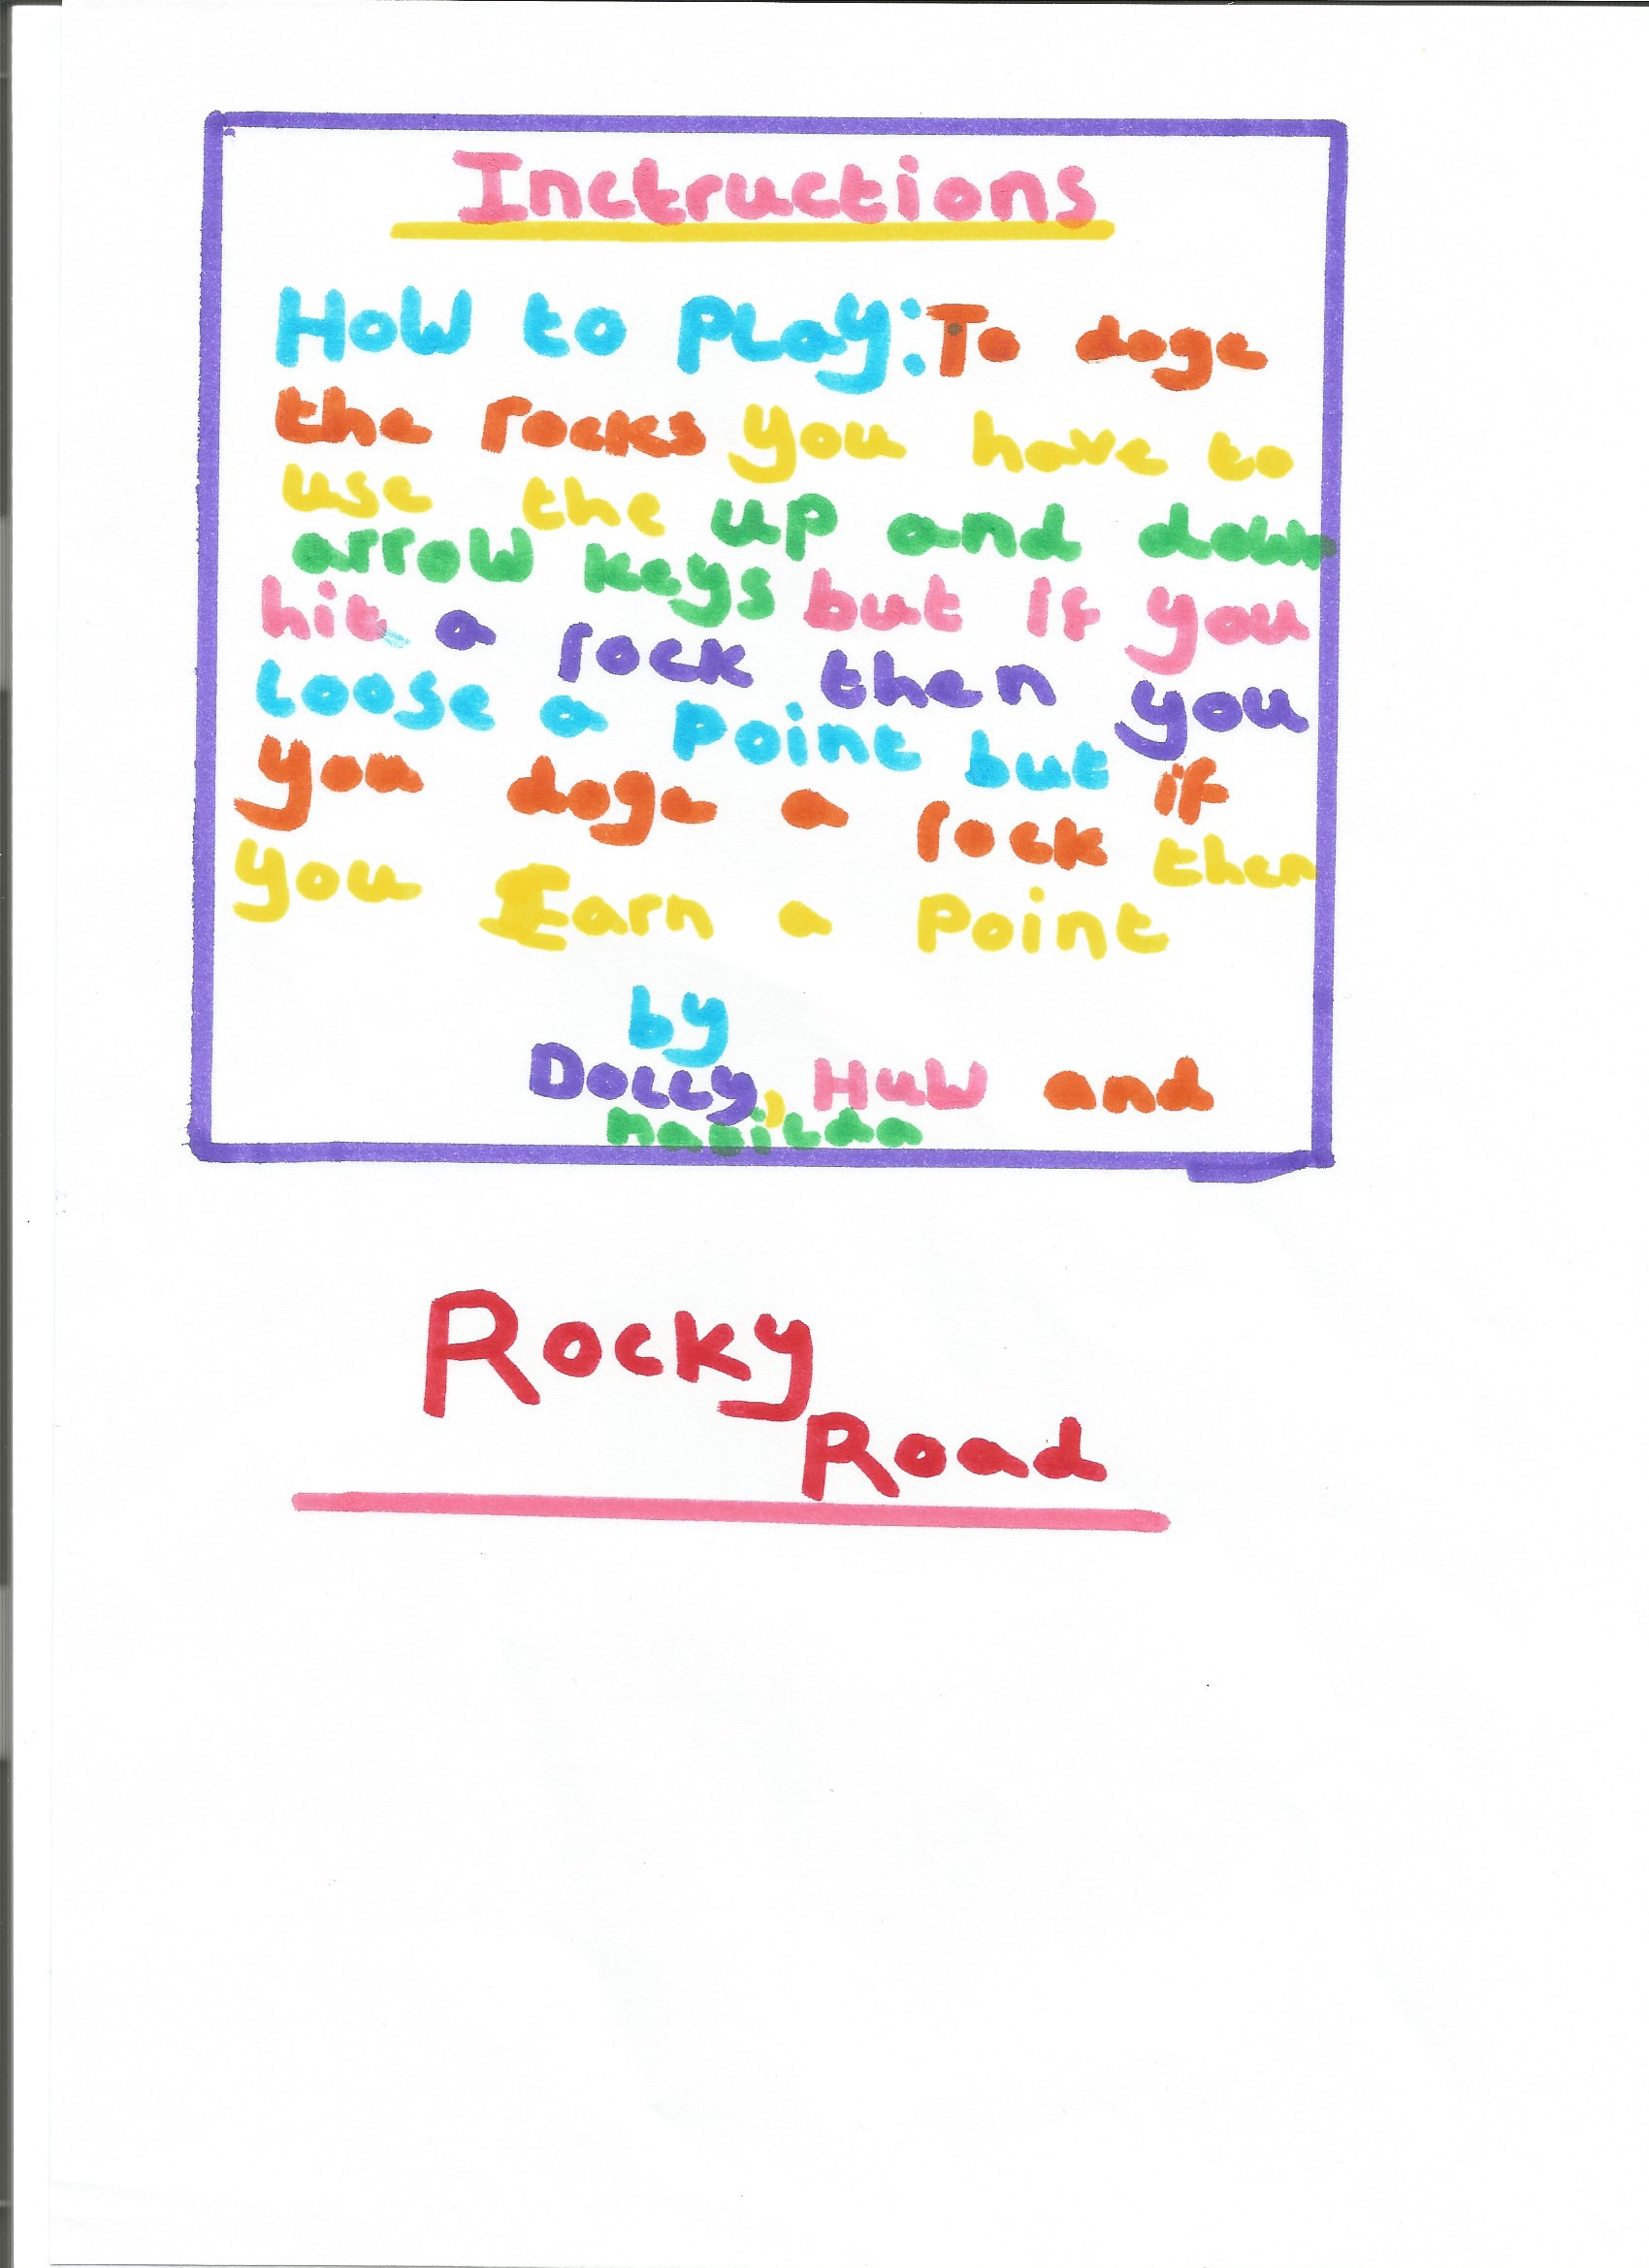 Inctructions
How to play: To doge
the rocks you have to
use the up and down
arrow keys but if you
hit a rock then you
loose a point but if
you doge a rock then
you Earn a point
by
Dolly, Huw and
Rocky
Road